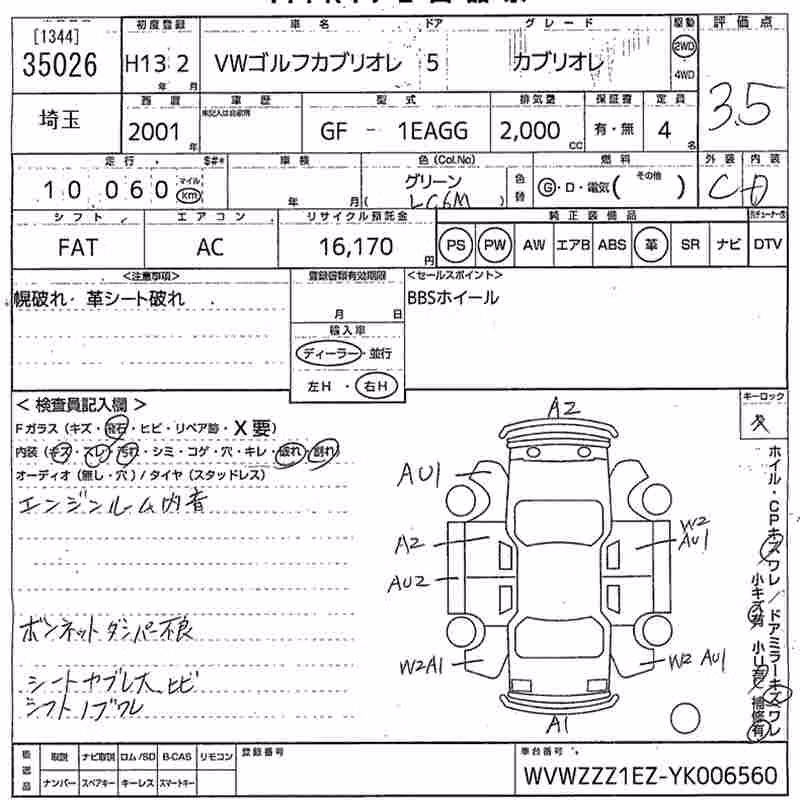 [1344]
35026
初度登録
H13 2
年 月
車名
VWゴルフカブリオレ
ドア
5
グレード
カブリオレ
駆動
2WD
4WD
評価点
3.5
埼玉
西暦
2001
年
車歴
未記入は自家用
型式
GF - 1EAGG
排気量
2,000
CC
保証書
有・無
定員
4
名
走行
$#*
10060
マイル
Km
車検
年 月
色 (Col.No)
グリーン
( LC6M )
色替
燃料
G・D・電気( その他 )
外装 内装
C D
シフト
FAT
エアコン
AC
リサイクル預託金
16,170
円
純正装備品
PS PW AW エアB ABS 革 SR ナビ
DTV
<注意事項>
幌破れ 革シート破れ
登録書類有効期限
月 日
輸入車
ディーラー・並行
左H ・ 右H
<セールスポイント>
BBSホイール
< 検査員記入欄 >
Fガラス (キズ・飛石・ヒビ・リペア跡・X要)
内装 (キズ・スレ・汚れ・シミ・コゲ・穴・キレ・破れ・割れ)
オーディオ (無し・穴) / タイヤ (スタッドレス)
エンジンルーム内青
ボンネットダンパー不良
シートヤブレ大 ヒビ
シフトノブワレ
A2
AU1
A2
AU2
W2A1
W2
AU1
W2 AU1
A1
キーロック
ホイル・CPキズワレ/ドアミラーキズワレ
欠品
取説 ナビ取説 ロム/SD B-CAS リモコン
ナンバー スペアキー キーレス スマートキー
登録番号
車台番号
WVWZZZ1EZ-YK006560